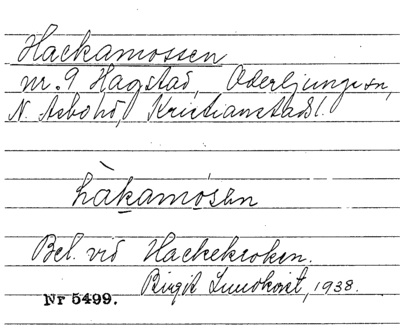 Hackamossen
nr. 9 Hagstad, Oderljunga sn,
N. Åsbo hd, Kristianstads l.
hàkamosen
Bel. vid Hackekroken.
Birgit Lundkvist, 1938.
Nr 5499.